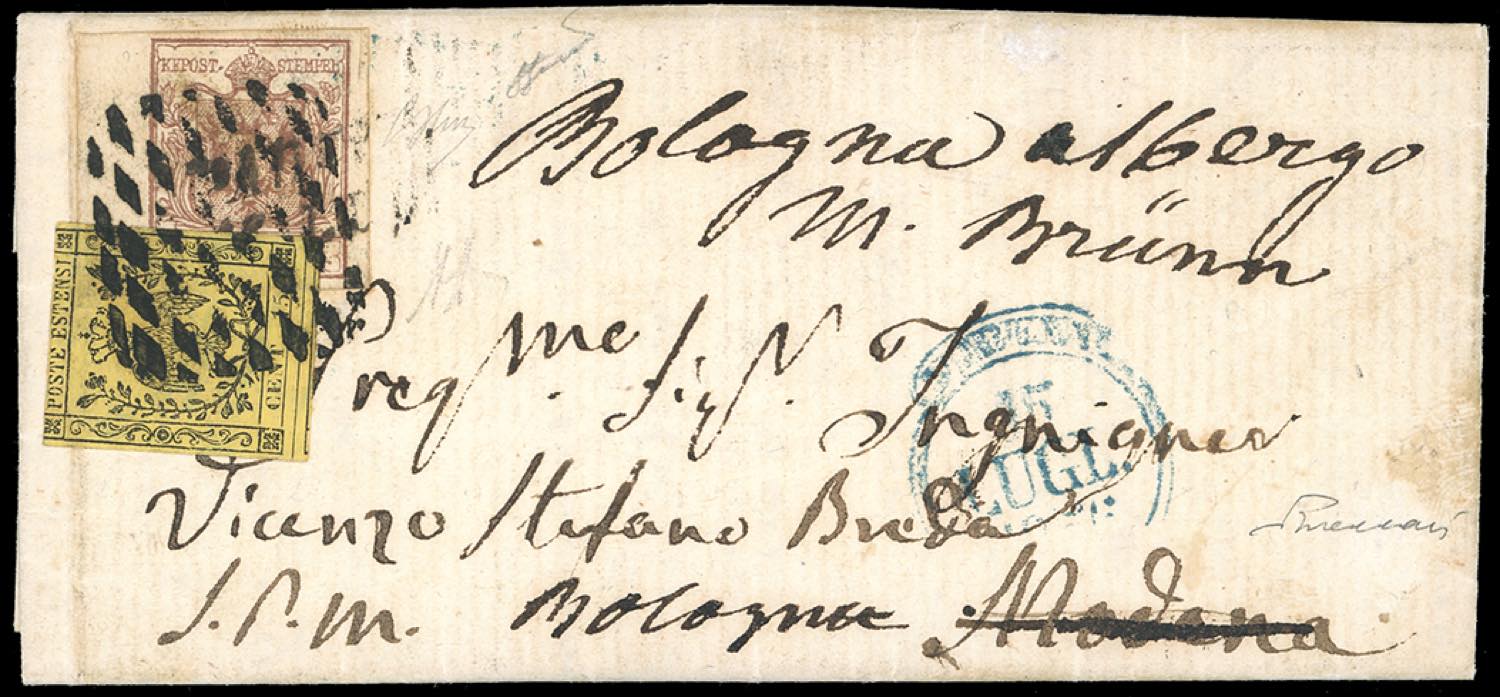 KKPOST-STEMPEL
POSTE ESTENSI
CENT. 15
Bologna albergo
M. Brünn
Preg.me Sigr. Ingnigner
Vicenzo Stefano Breda
S.P.M. Bologna Modena
15
LUGL.